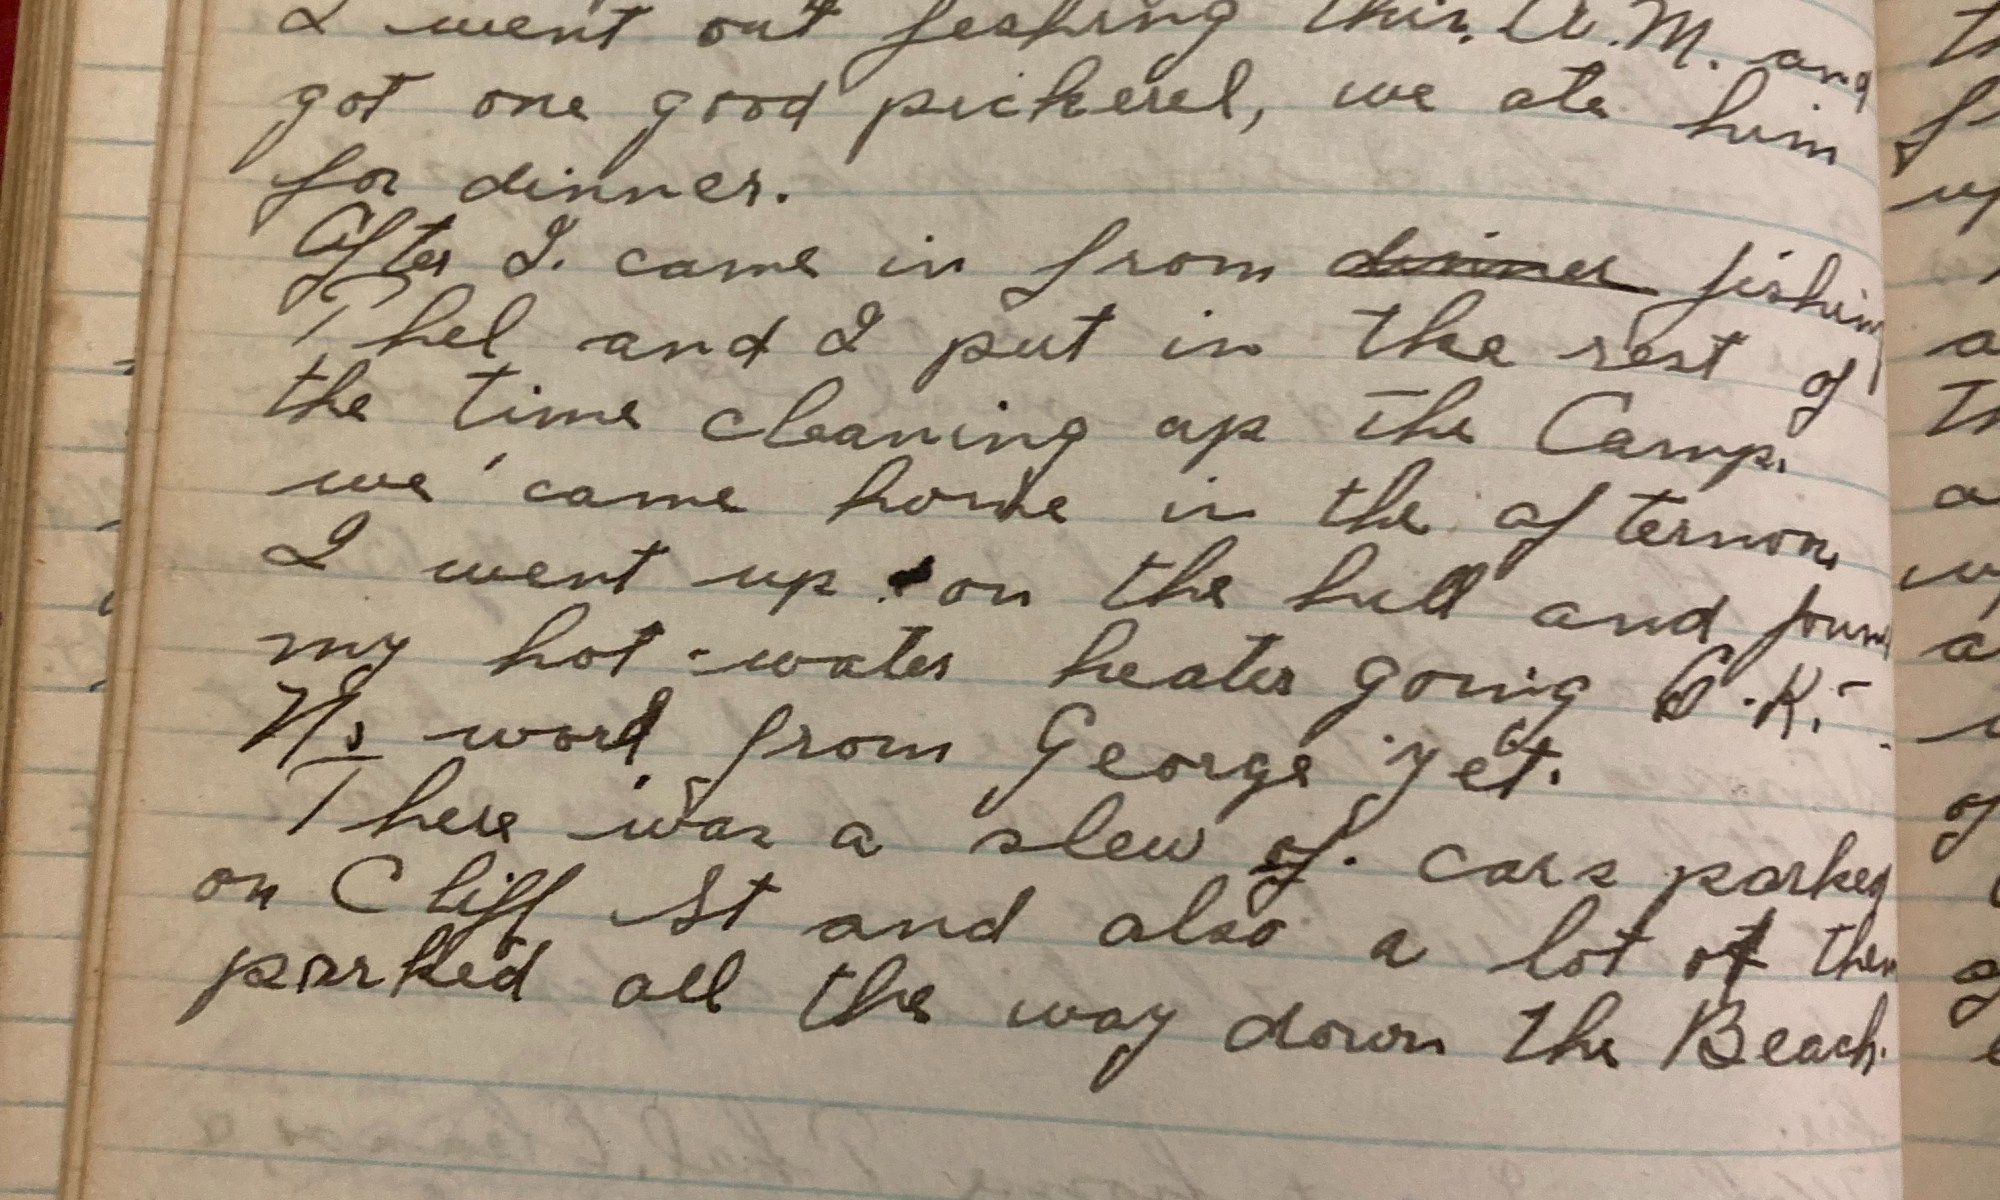 I went out feshing this. A.M. and
got one good pickerel, we ate him
for dinner.
After I. came in from dinner fishing
Thel and I put in the rest of
the time cleaning up the Camp.
we came home in the afternoon
I went up on the hill and found
my hot-water heater going O.K.-
No word from George yet.
There was a slew of cars parked
on Cliff St and also a lot of them
parked all the way down the Beach.